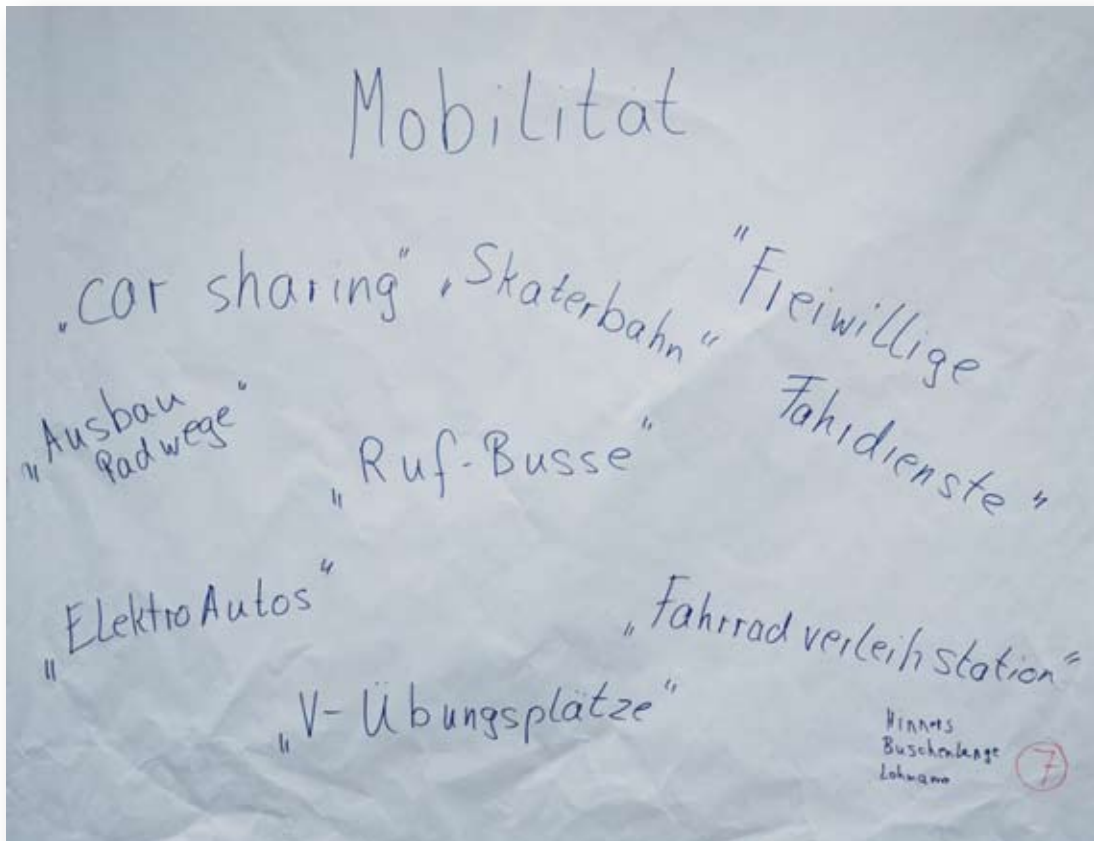 Mobilität
„car sharing" „Skaterbahn"
"Freiwillige
Fahrdienste"
„Ausbau
Radwege"
„Ruf-Busse"
„ElektroAutos"
„Fahrradverleihstation"
„V-Übungsplätze"
Hinners
Buschenlange
Lohmann
7